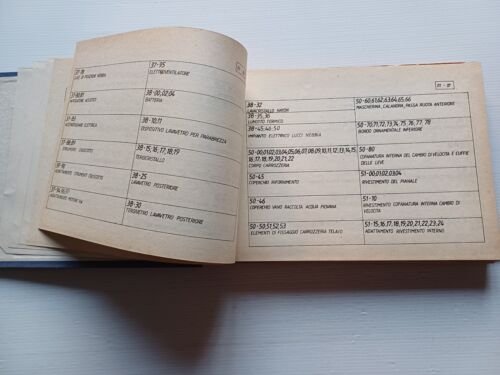 37-95
ELETTROVENTILATORE
38-00,02,04
BATTERIA
38-10,11
DISPOSITIVO LAVAVETRO PER PARABREZZA
38-15,16,17,18,19
TERGICRISTALLO
38-25
LAVAVETRO POSTERIORE
38-30
TERGIVETRO LAVAVETRO POSTERIORE
38-32
38-35,36
LUNOTTO TERMICO
38-45,46,50
IMPIANTO ELETTRICO LUCI NEBBIA
50-00,01,02,03,04,05,06,07,08,09,10,11,12,13,14,15,
16,17,18,19,20,21,22
CORPO CARROZZERIA
50-45
COPERCHIO RIFORNIMENTO
50-46
COPERCHIO VANO RACCOLTA ACQUA PIOVANA
50-50,51,52,53
ELEMENTI DI FISSAGGIO CARROZZERIA TELAIO
50-60,61,62,63,64,65,66
MASCHERINA, CALANDRA, PASSA RUOTA ANTERIORE
50-70,71,72,73,74,75,76,77,78
BORDO ORNAMENTALE INFERIORE
50-80
COPANATURA INTERNA DEL CAMBIO DI VELOCITA E CUFFIE
DELLE LEVE
51-00,01,02,03,04
RIVESTIMENTO DEL PIANALE
51-10
RIVESTIMENTO COPANATURA INTERNA CAMBIO DI
VELOCITA
51-15,16,17,18,19,20,21,22,23,24
ADATTAMENTO RIVESTIMENTO INTERNO